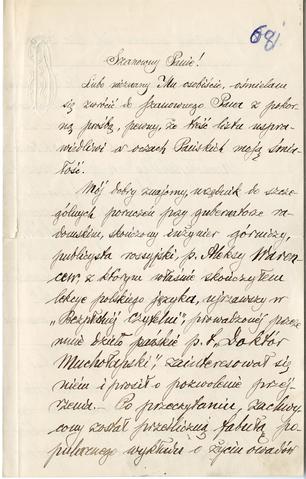 68j
Szanowny Panie!
Lubo nieznany Mu osobiście, ośmielam
się zwrócić do Szanownego Pana z pokor-
ną prośbą, pewny, że treść listu uspra-
wiedliwi w oczach Pańskich moją śmia-
łość.
Mój dobry znajomy, urzędnik do szcze-
gólnych poruczeń przy gubernatorze ra-
domskim, skończony inżynier górniczy,
publicysta rosyjski, p. Aleksy Waren-
cew, z którym właśnie skończyłem
lekcje polskiego języka, ujrzawszy w
"Bezpłatnej Czytelni", prowadzonej przeze
mnie dzieło pańskie p. t. "Doktór
Muchołapski", zainteresował się
niem i prosił o pozwolenie przej-
rzenia. – Po przeczytaniu, zachwy-
cony został prześliczną fabułą po-
pularnego wykładu o życiu owadów